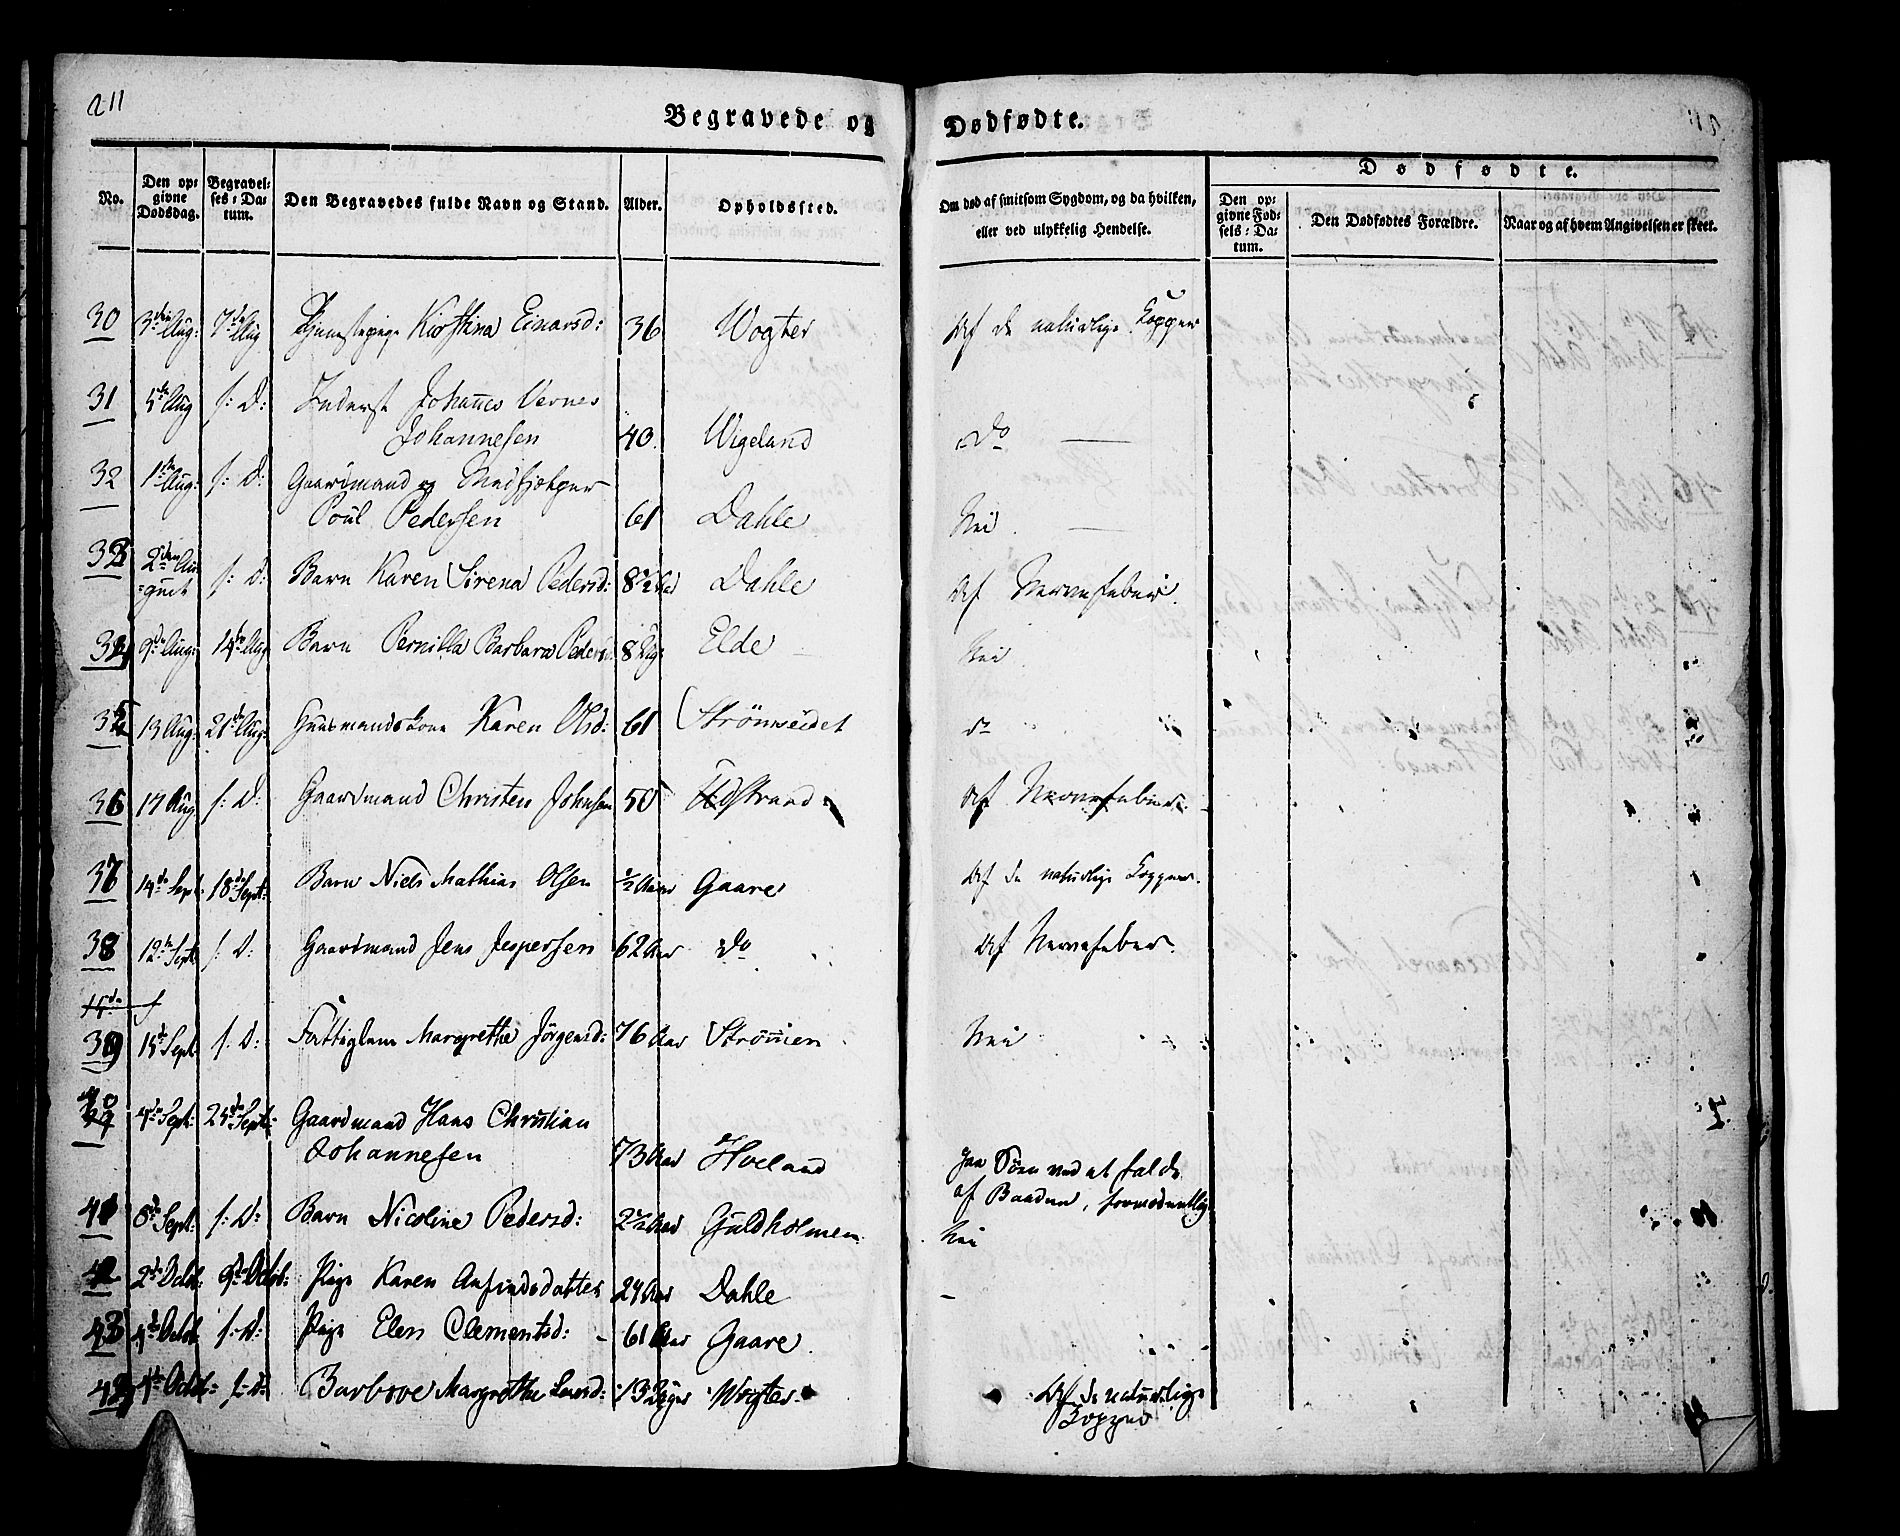 211
Begravede og Dødfødte.
No. Den opgivne Dødsdag. Begravelses-Datum. Den Begravedes fulde Navn og Stand. Alder. Opholdssted. Om død af smitsom Sygdom, og da hvilken, eller ved ulykkelig Hendelse.
Dødfødte.
Den opgivne Fødsels-Datum. Den Dødfødtes Forældre. Naar og af hvem Angivelsen er skeet.
30 3die Aug: 7de Aug Tjenestepige Kirstina Einarsd: 36 Wogter Af de naturlige Kopper
31 5te Aug s: D: Inderst Johannes Vernes
Johannesen 40. Wigeland Do
32 1ste Aug: s: D: Gaardmand og Medhjelper
Poül Pedersen 61 Dahle Nei
33 2den August s: D: Barn Karen Sirena Pedersd: 8½ Aar Dahle Af Nervefeber.
34 9de Aug: 14de Aug Barn Pernilla Barbara Pedersd: 8 Dage Elde Nei
35 13 Aug: 21de Aug: Huusmandskone Karen Olsd: 61 Strömseidet do
36 17 Aug s: D: Gaardmand Christen Johnsen 50 Udstrand Af Nervefeber.
37 14de Sept. 18de Sept: Barn Niels Mathias Olsen ½ Aar Gaare Af de naturlige Kopper.
38 12te Sept s: D: Gaardmand Jens Jespersen 62 Aar Do Af Nervefeber.
39 15de Sept s: D: Fattiglem Margrethe Jörgensd: 76 Aar Strömen Nei
40 4de Sept: 25de Sept: Gaardmand Hans Christian
Johannesen 73 Aar Hveland Paa Söen ved at falde
af Baaden, formodentlig
41 8de Sept: s: D: Barn Nicoline Pedersd: 2½ Aar Guldholmen Nei
42 2de Octb: 9de Octob: Pige Karen Anfindsdatter 24 Aar Dahle
43 4de Octb s: D: Pige Elen Clementsd: 61 Aar Gaare.
4de Octb: s: D: Barbroe Margrethe 13 Uger Wogter. Af de naturlige
Kopper